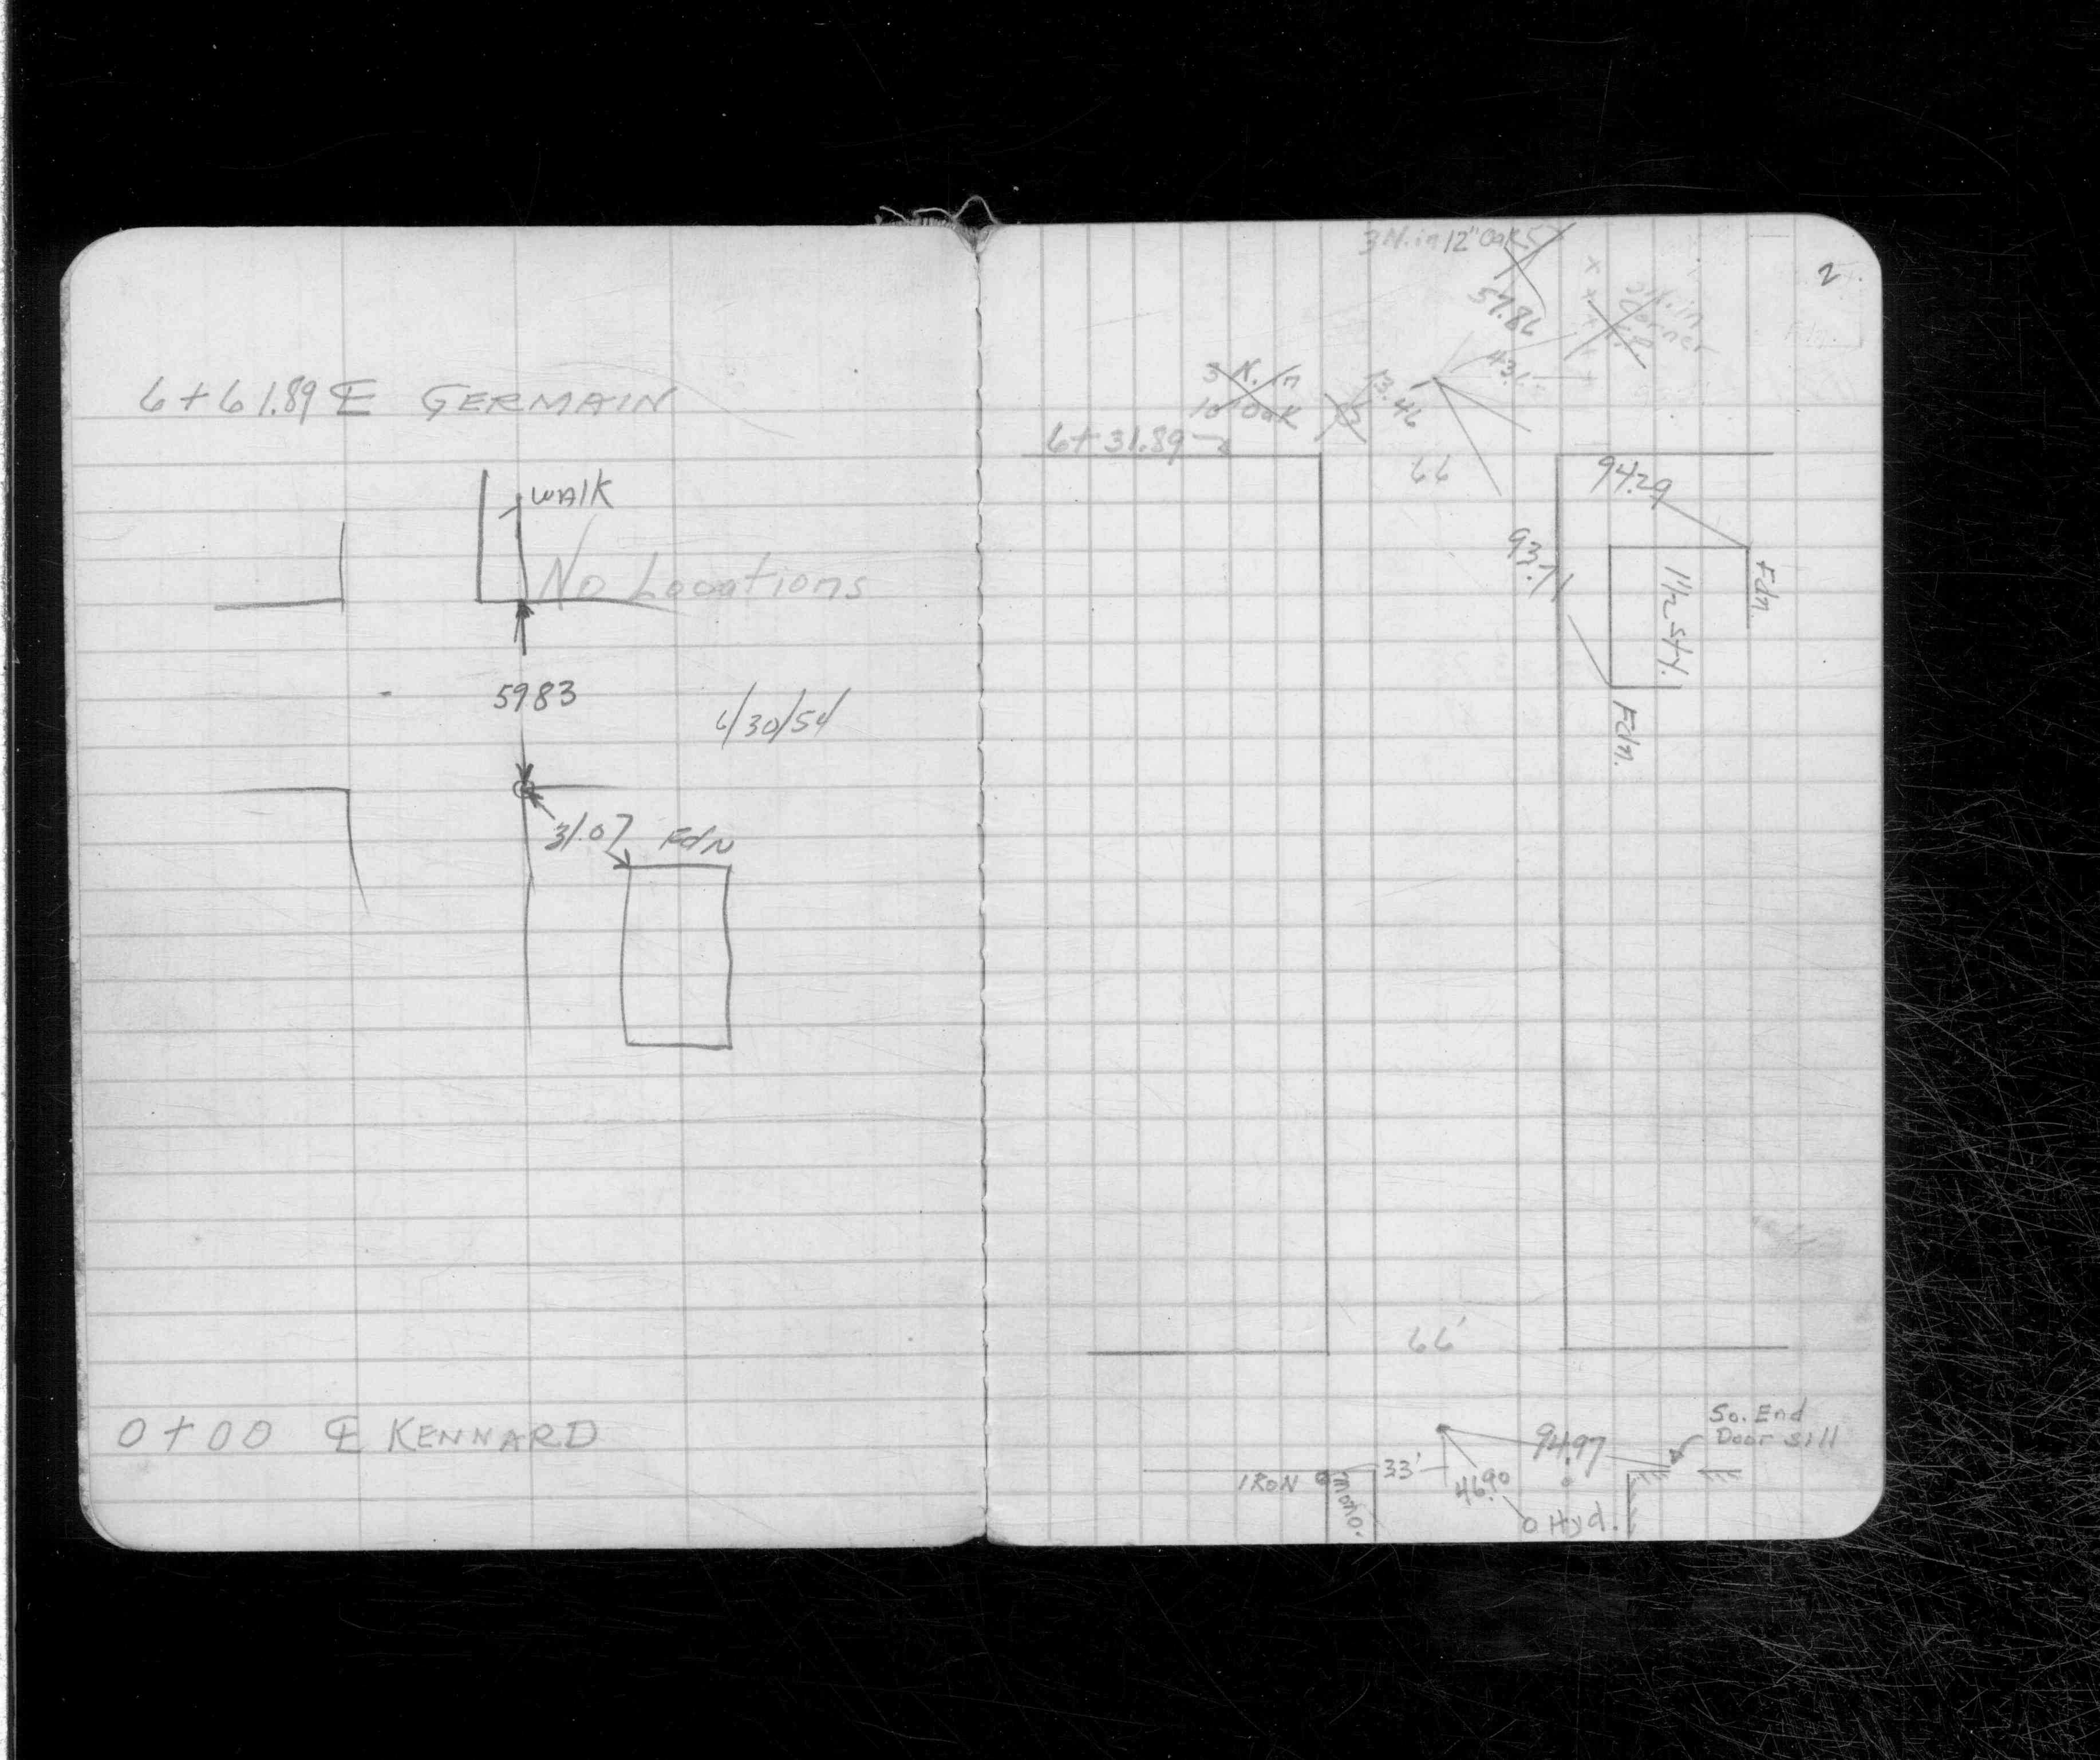 6+61.89 ℄ GERMAIN
WALK
No Locations
5983
6/30/54
31.07 Fdn
0+00 ℄ KENNARD
2
3 N. in 12" Oak
57.86
Corner
43.
3 N. in
10" Oak
13.46
6+31.89
66
94.29
93.71
1 1/2 Sty.
Fdn.
Fdn.
66'
So. End
Door sill
94.97
IRON
mono.
33'
46.90
Hyd.